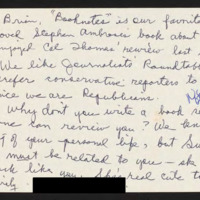 Brian, "Booknotes" is our favorite
Stephen Ambrose's book about
enjoyed Cal Thomas' review last
We like Journalists Roundtable
prefer conservative reporters to
we are Republicans.
Why don't you write a book so
one can review you? We
of your personal life, but Su
must be related to you - she
look like you. She's real cute to